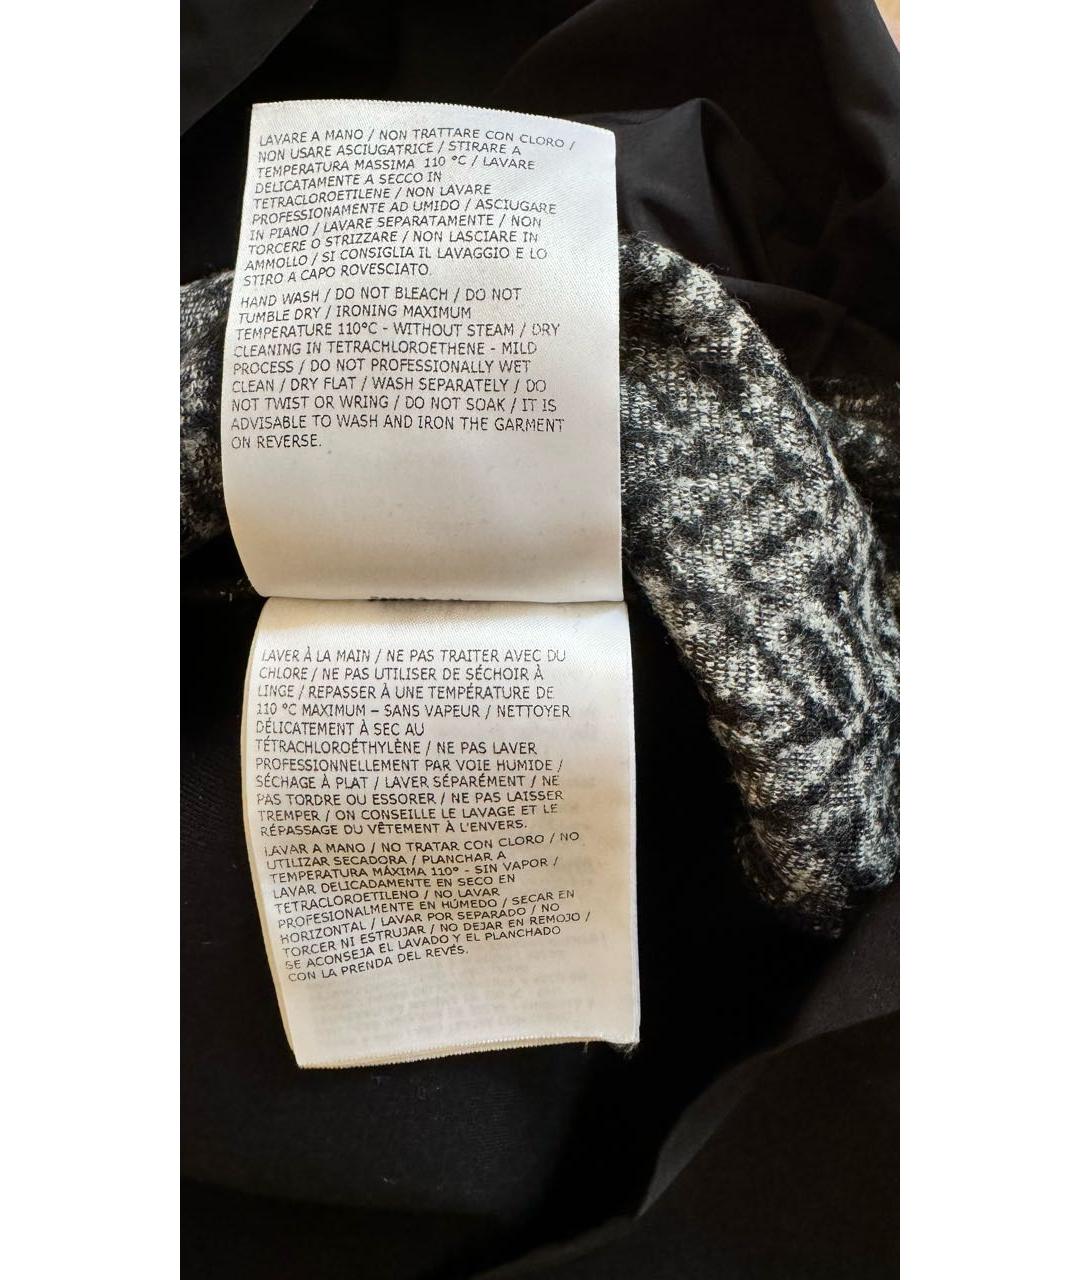 LAVARE A MANO / NON TRATTARE CON CLORO /
NON USARE ASCIUGATRICE / STIRARE A
TEMPERATURA MASSIMA 110 °C / LAVARE
DELICATAMENTE A SECCO IN
TETRACLOROETILENE / NON LAVARE
PROFESSIONAMENTE AD UMIDO / ASCIUGARE
IN PIANO / LAVARE SEPARATAMENTE / NON
TORCERE O STRIZZARE / NON LASCIARE IN
AMMOLLO / SI CONSIGLIA IL LAVAGGIO E LO
STIRO A CAPO ROVESCIATO.
HAND WASH / DO NOT BLEACH / DO NOT
TUMBLE DRY / IRONING MAXIMUM
TEMPERATURE 110°C - WITHOUT STEAM / DRY
CLEANING IN TETRACHLOROETHENE - MILD
PROCESS / DO NOT PROFESSIONALLY WET
CLEAN / DRY FLAT / WASH SEPARATELY / DO
NOT TWIST OR WRING / DO NOT SOAK / IT IS
ADVISABLE TO WASH AND IRON THE GARMENT
ON REVERSE.
LAVER À LA MAIN / NE PAS TRAITER AVEC DU
CHLORE / NE PAS UTILISER DE SÉCHOIR À
LINGE / REPASSER À UNE TEMPÉRATURE DE
110 °C MAXIMUM – SANS VAPEUR / NETTOYER
DÉLICATEMENT À SEC AU
TÉTRACHLOROÉTHYLÈNE / NE PAS LAVER
PROFESSIONNELLEMENT PAR VOIE HUMIDE /
SÉCHAGE À PLAT / LAVER SÉPARÉMENT / NE
PAS TORDRE OU ESSORER / NE PAS LAISSER
TREMPER / ON CONSEILLE LE LAVAGE ET LE
RÉPASSAGE DU VÊTEMENT À L'ENVERS.
LAVAR A MANO / NO TRATAR CON CLORO / NO
UTILIZAR SECADORA / PLANCHAR A
TEMPERATURA MÁXIMA 110° - SIN VAPOR /
LAVAR DELICADAMENTE EN SECO EN
TETRACLOROETILENO / NO LAVAR
PROFESIONALMENTE EN HÚMEDO / SECAR EN
HORIZONTAL / LAVAR POR SEPARADO / NO
TORCER NI ESTRUJAR / NO DEJAR EN REMOJO /
SE ACONSEJA EL LAVADO Y EL PLANCHADO
CON LA PRENDA DEL REVÉS.